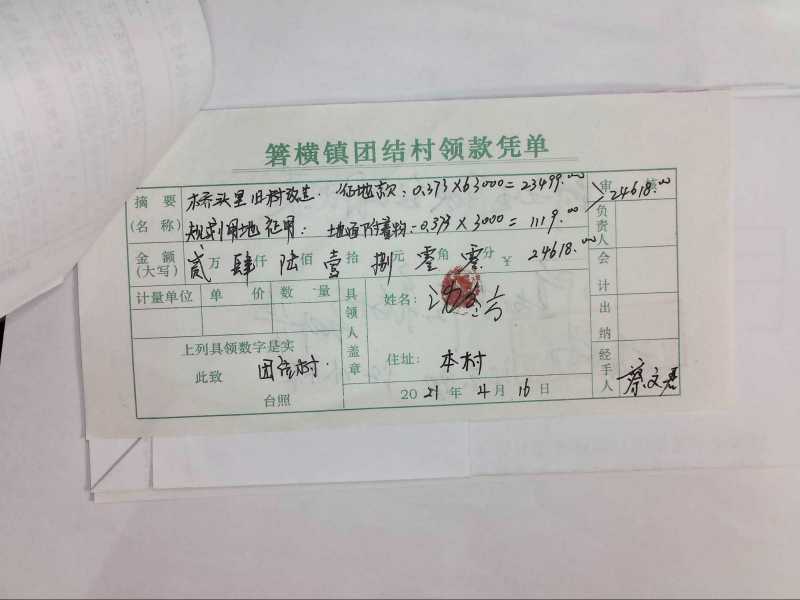 箬横镇团结村领款凭单
摘要 木桥头里旧村改建. 征地款:0.373×63000=23499.00 审核
(名称) 规划用地证明: 地面附着物:0.373×3000=1119.00 24618.00
负责人
金额(大写) 贰万肆仟陆佰壹拾捌元零角零分 ¥ 24618.00
会计
计量单位 单价 数量 具领人盖章 姓名:
出纳
上列具领数字是实
此致 团结村. 住址: 本村
经手人
台照 2021年4月16日